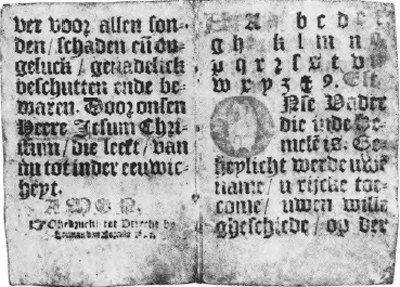 ver voor allen son-
den / schaden eñ on-
geluck / genadelick
beschutten ende be-
waren. Door onsen
Heere Jesum Chri-
stum / die leeft / van
nu tot inder eeuwic-
heyt.
AMEN.
Ghedruckt tot Utrecht by
A a b c d e f
g h i k l m n
p q r z s t v
w x y z
Nse Vader
die inde He-
melē is. Ge-
heylicht werde uwē
name / u rijcke toe-
come / uwen wille
gheschiede / op der